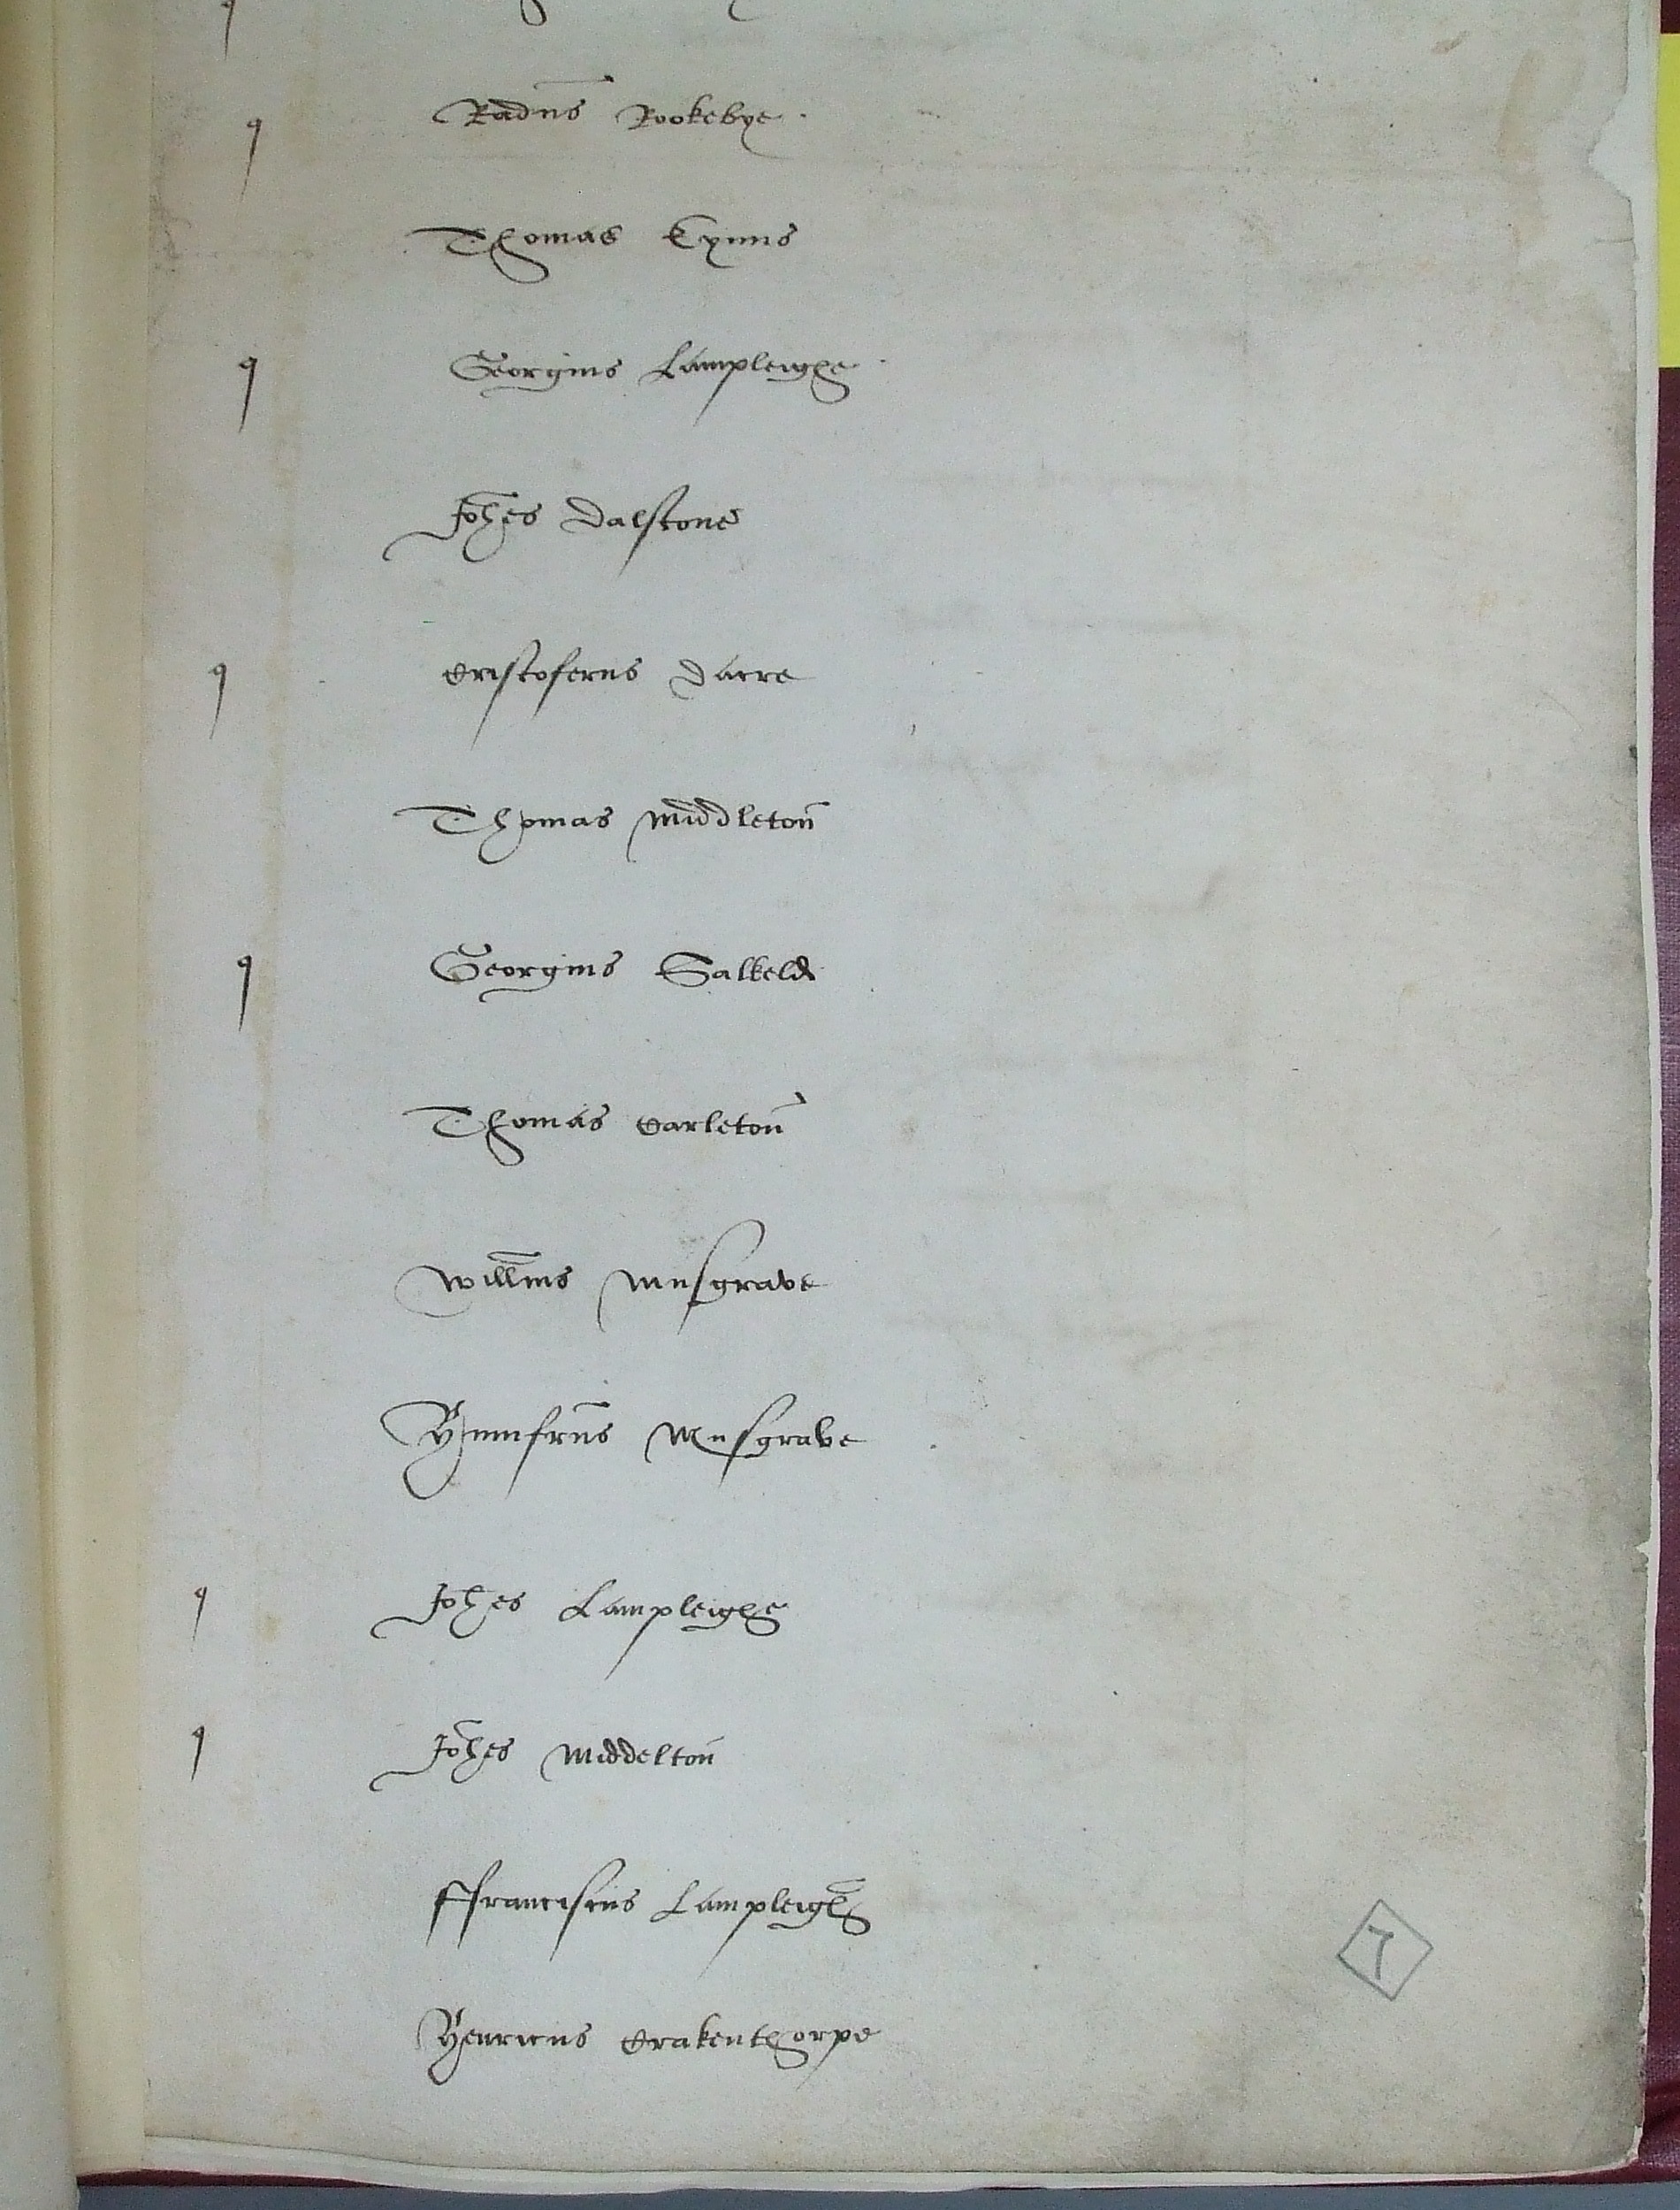 q Radūs Rookebye .
Thomas Eynns
q Georgius Lampleighe
Joh̃es Dalstone
q Cristoferus Dacre
Thomas Middleton̄
q Georgius Salkeld
Thomas Carleton̄
Will̃ms Musgrave
Humfrūs Musgrave
q Joh̃es Lampleighe
q Joh̃es Middelton̄
ffranciscus Lampleigh̃
Henricus Crakenthorpe
7